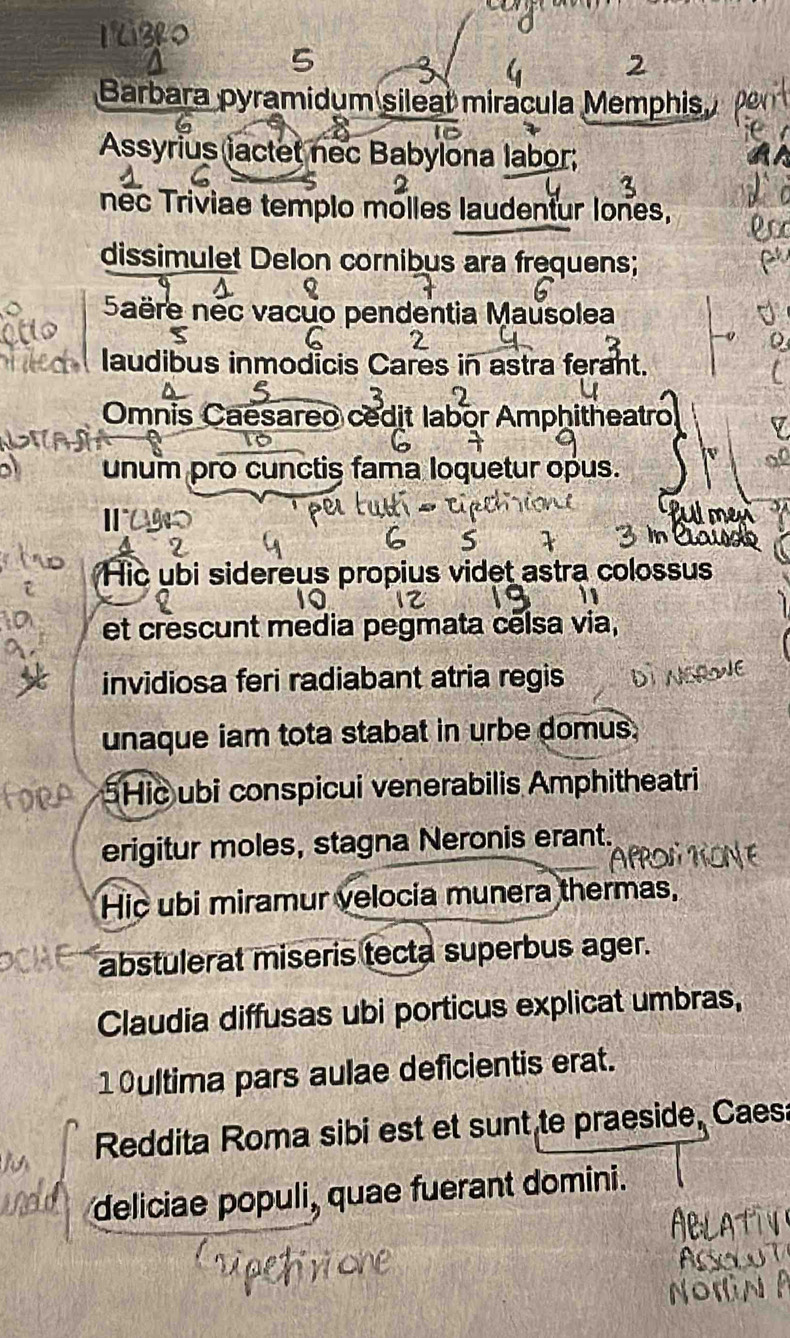 I°LIBRO
1 5 3 4 2
Barbara pyramidum sileat miracula Memphis,
6 9 8 10 7
Assyrius iactet nec Babylona labor;
1 6 5 2 4 3
nec Triviae templo molles laudentur Iones,
dissimulet Delon cornibus ara frequens;
9 1 8 7 6
5aëre nec vacuo pendentia Mausolea
5 6 2 4 3
laudibus inmodicis Cares in astra ferant.
1 5 3 2 4
Omnis Caesareo cedit labor Amphitheatro,
8 10 6 7 9
unum pro cunctis fama loquetur opus.
per tutti = ripetizione
II°LIBRO
1 2 4 6 5 7 3 in
Hic ubi sidereus propius videt astra colossus
8 10 12 13 11
et crescunt media pegmata celsa via,
invidiosa feri radiabant atria regis DI NERONE
unaque iam tota stabat in urbe domus;
5Hic ubi conspicui venerabilis Amphitheatri
erigitur moles, stagna Neronis erant.
APPOSIZIONE
Hic ubi miramur velocia munera thermas,
abstulerat miseris tecta superbus ager.
Claudia diffusas ubi porticus explicat umbras,
10ultima pars aulae deficientis erat.
Reddita Roma sibi est et sunt, te praeside, Caesa
deliciae populi, quae fuerant domini.
ripetizione